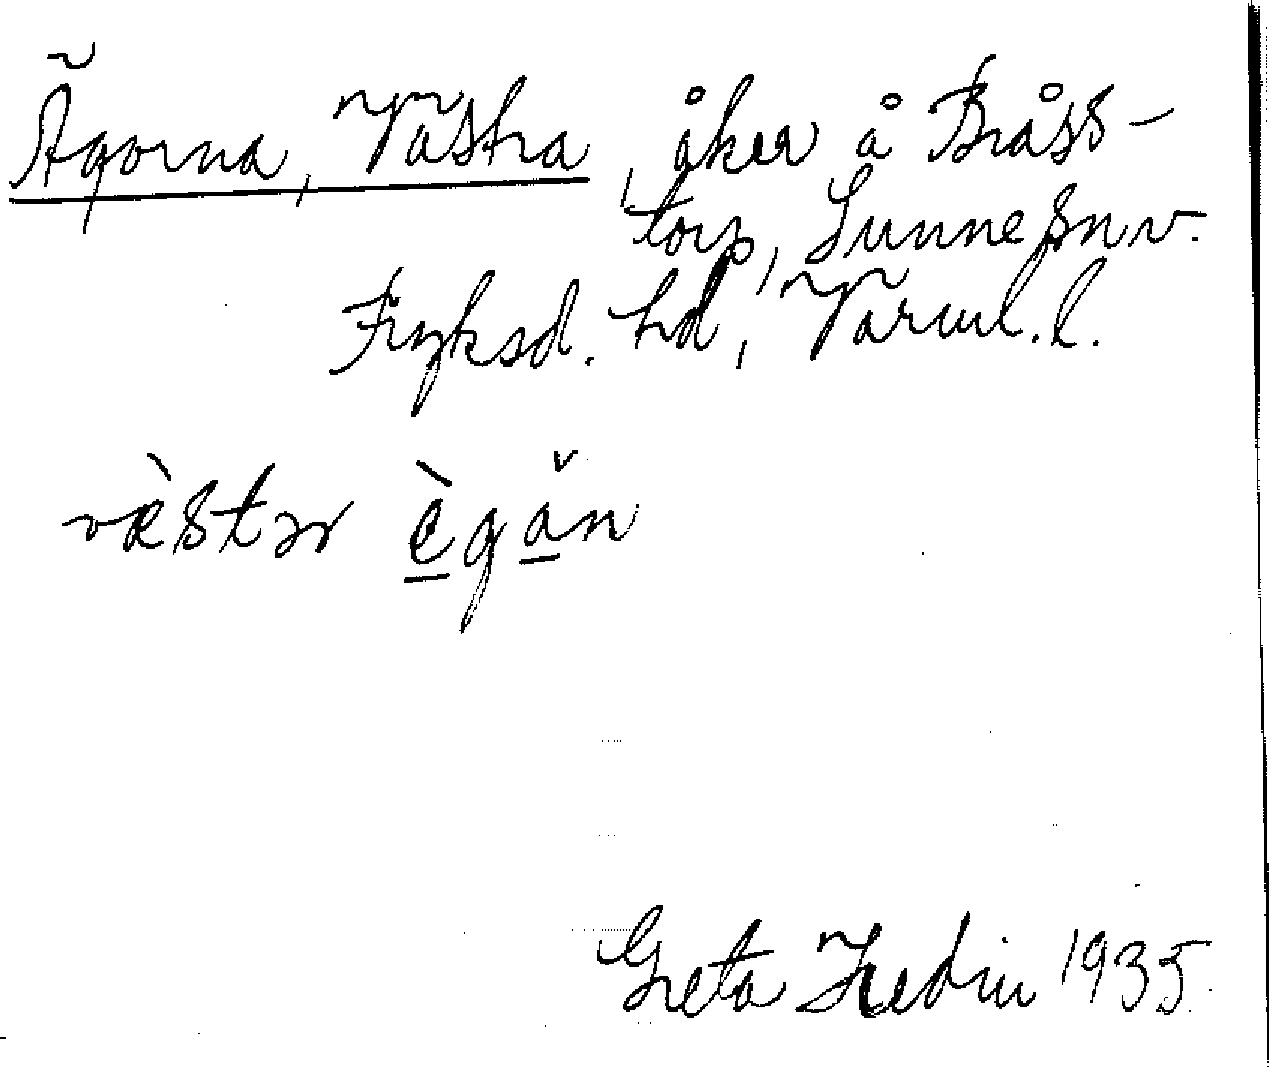 Ägorna, Västra, åker å Bråss-
torp, Sunne sn v.
Fryksd. hd, Värml. l.
væ̀stər è̠gä̠̌n
Greta Hedin 1935.